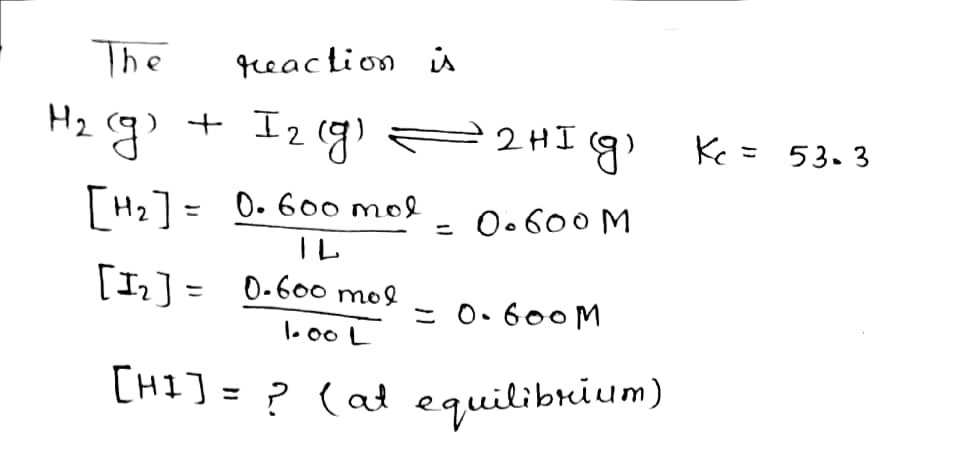 The reaction is
H₂ (g) + I₂ (g) ⇌ 2HI (g) Kc = 53.3
[H₂] = 0.600 mol / 1L = 0.600 M
[I₂] = 0.600 mol / 1.00 L = 0.600 M
[HI] = ? (at equilibrium)